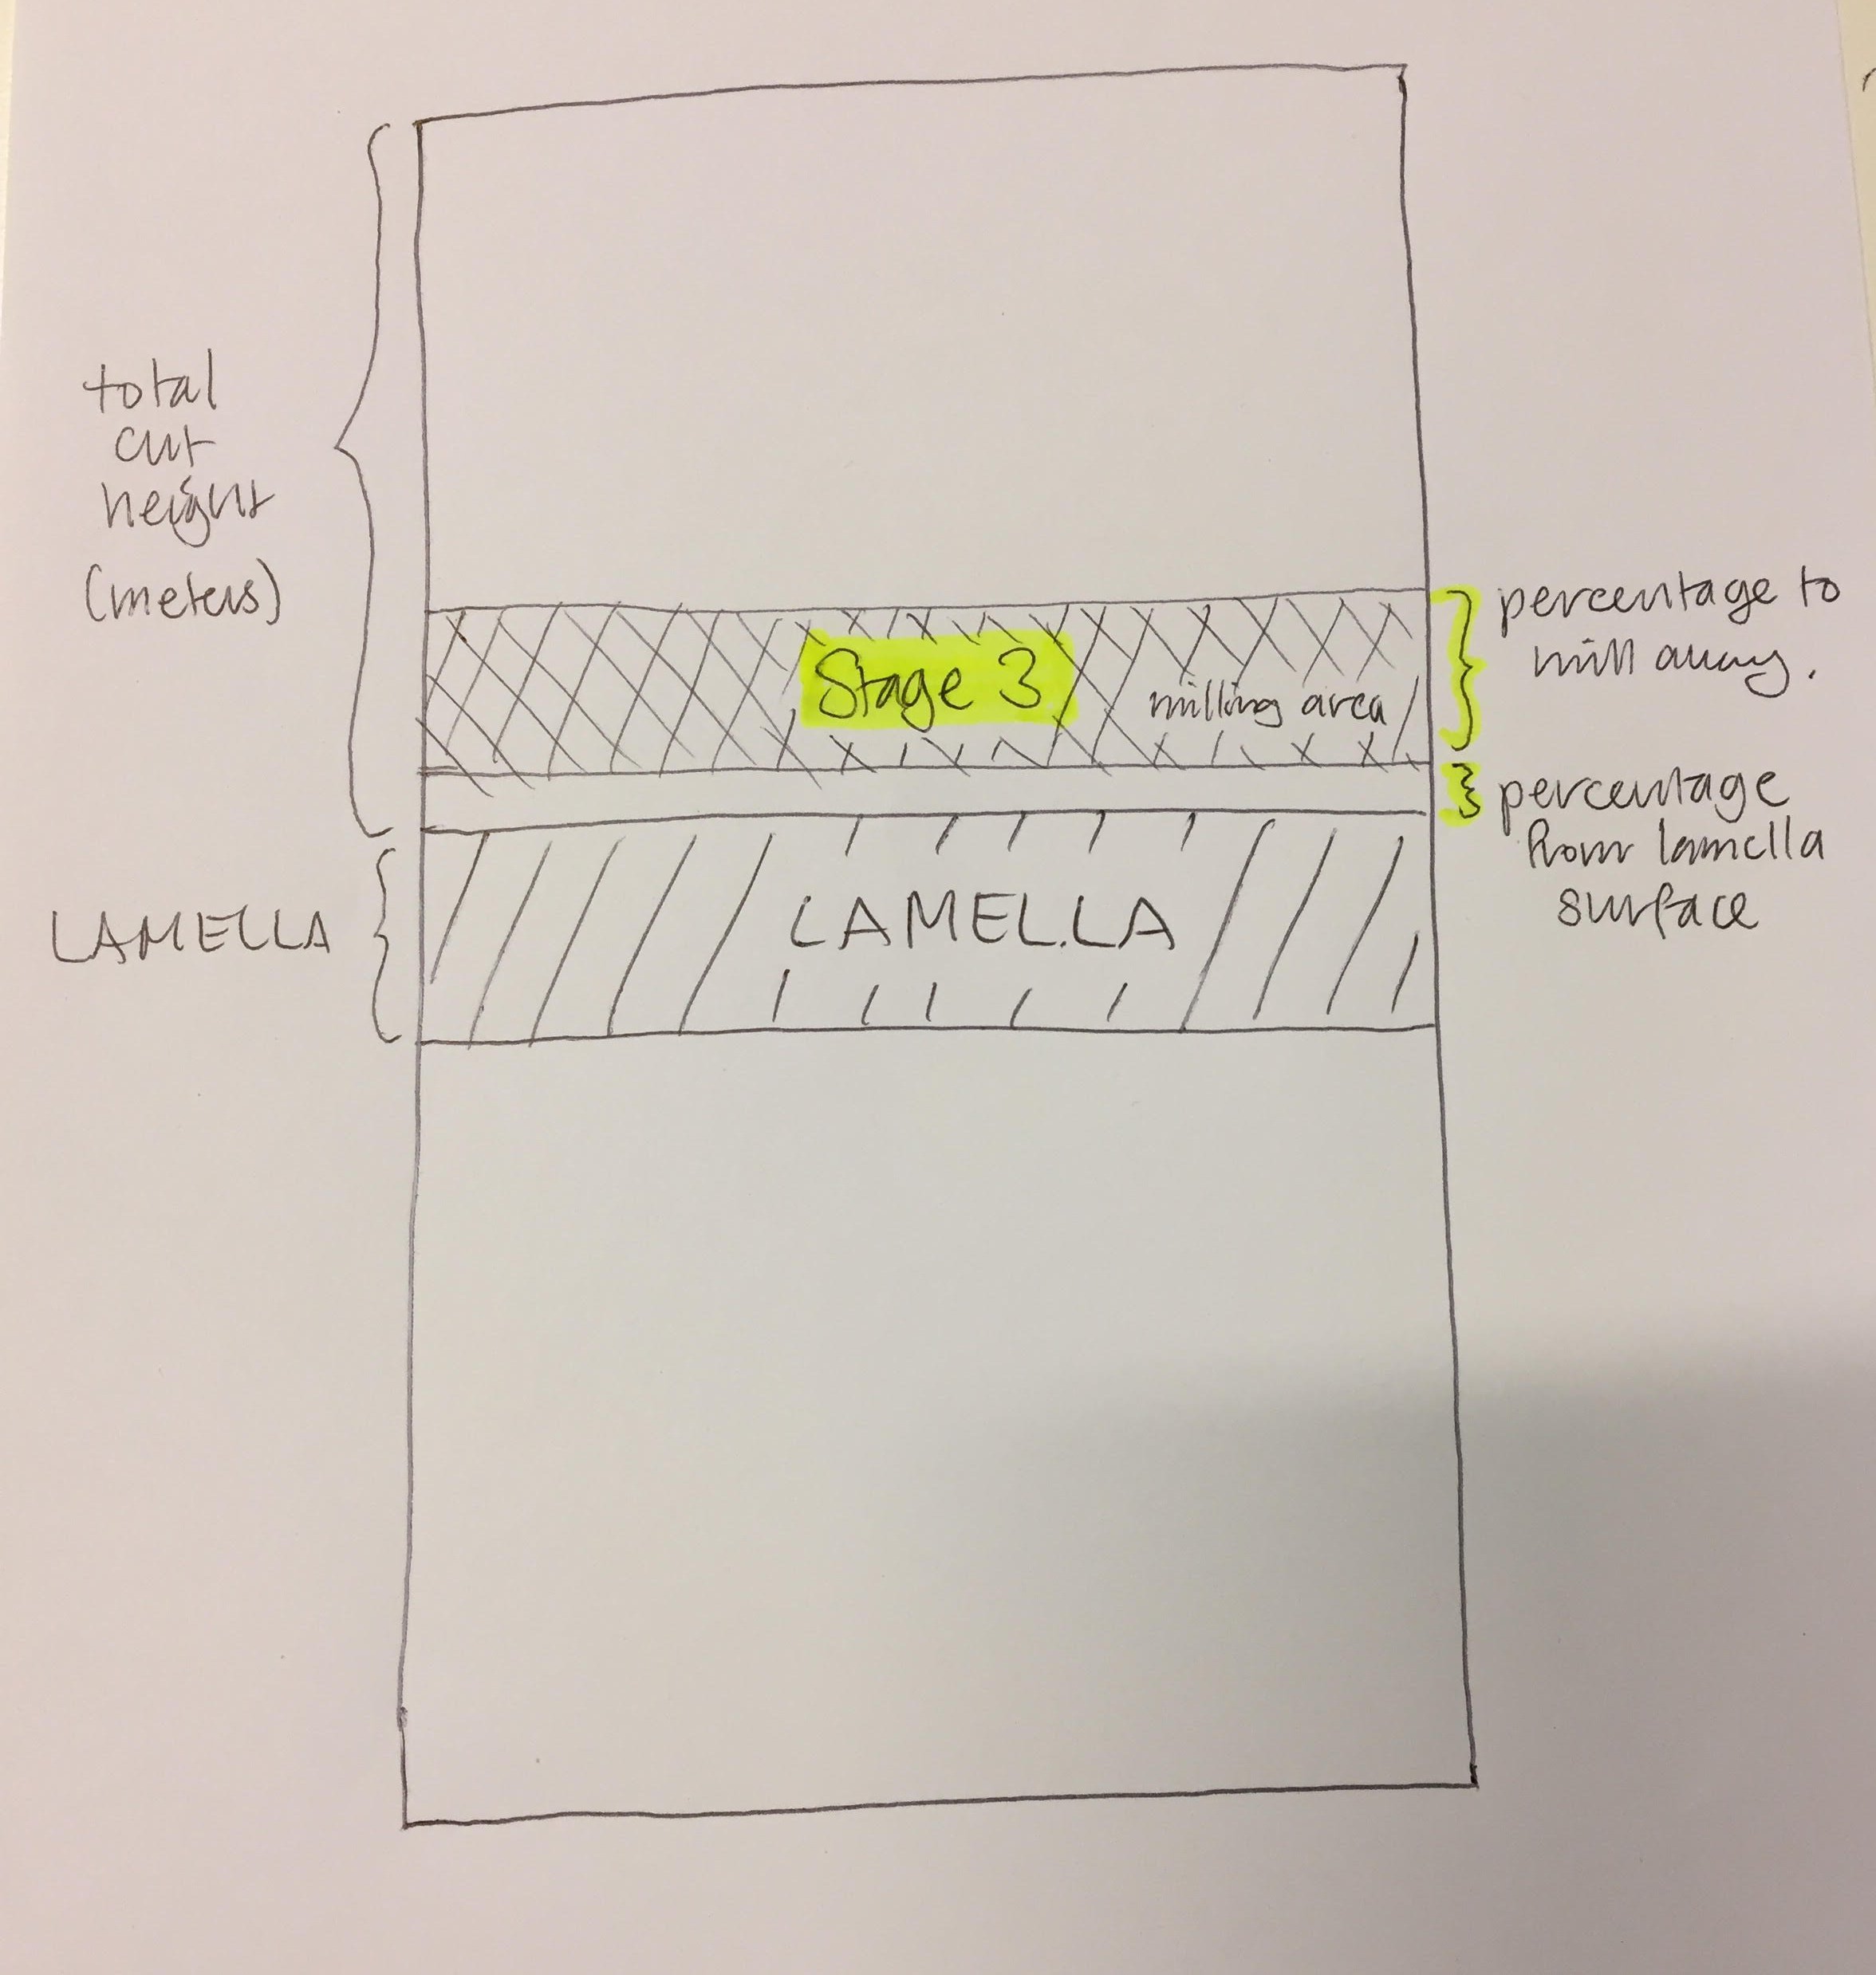 total
cut
height
(meters)
Stage 3
milling area
percentage to
mill away.
percentage
from lamella
surface
LAMELLA
LAMELLA